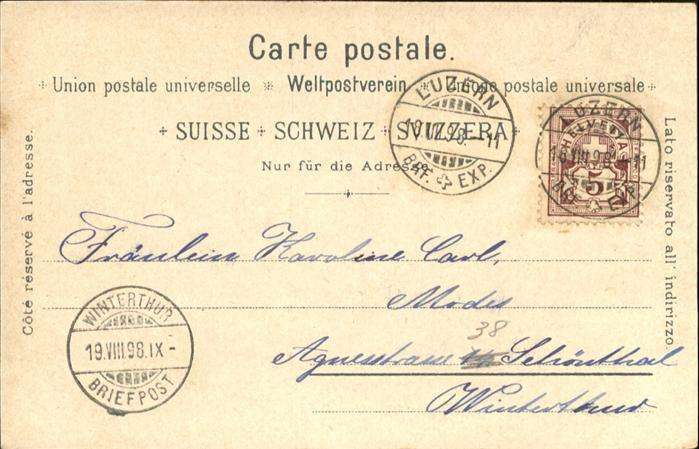 Carte postale.
Union postale universelle Weltpostverein Unione postale universale
SUISSE SCHWEIZ SVIZZERA
Nur für die Adresse.
Côté réservé à l'adresse.
Lato riservato all' indirizzo.
LUZERN
19.VIII.98. 11
BRF. EXP.
LUZERN
18.VIII.98. 11
EXP.
HELVETIA
5
Fräulein Karoline Carl,
Modes
38
Agnesstrasse Schönthal
Winterthur
WINTERTHUR
19.VIII.98.IX-
BRIEFPOST